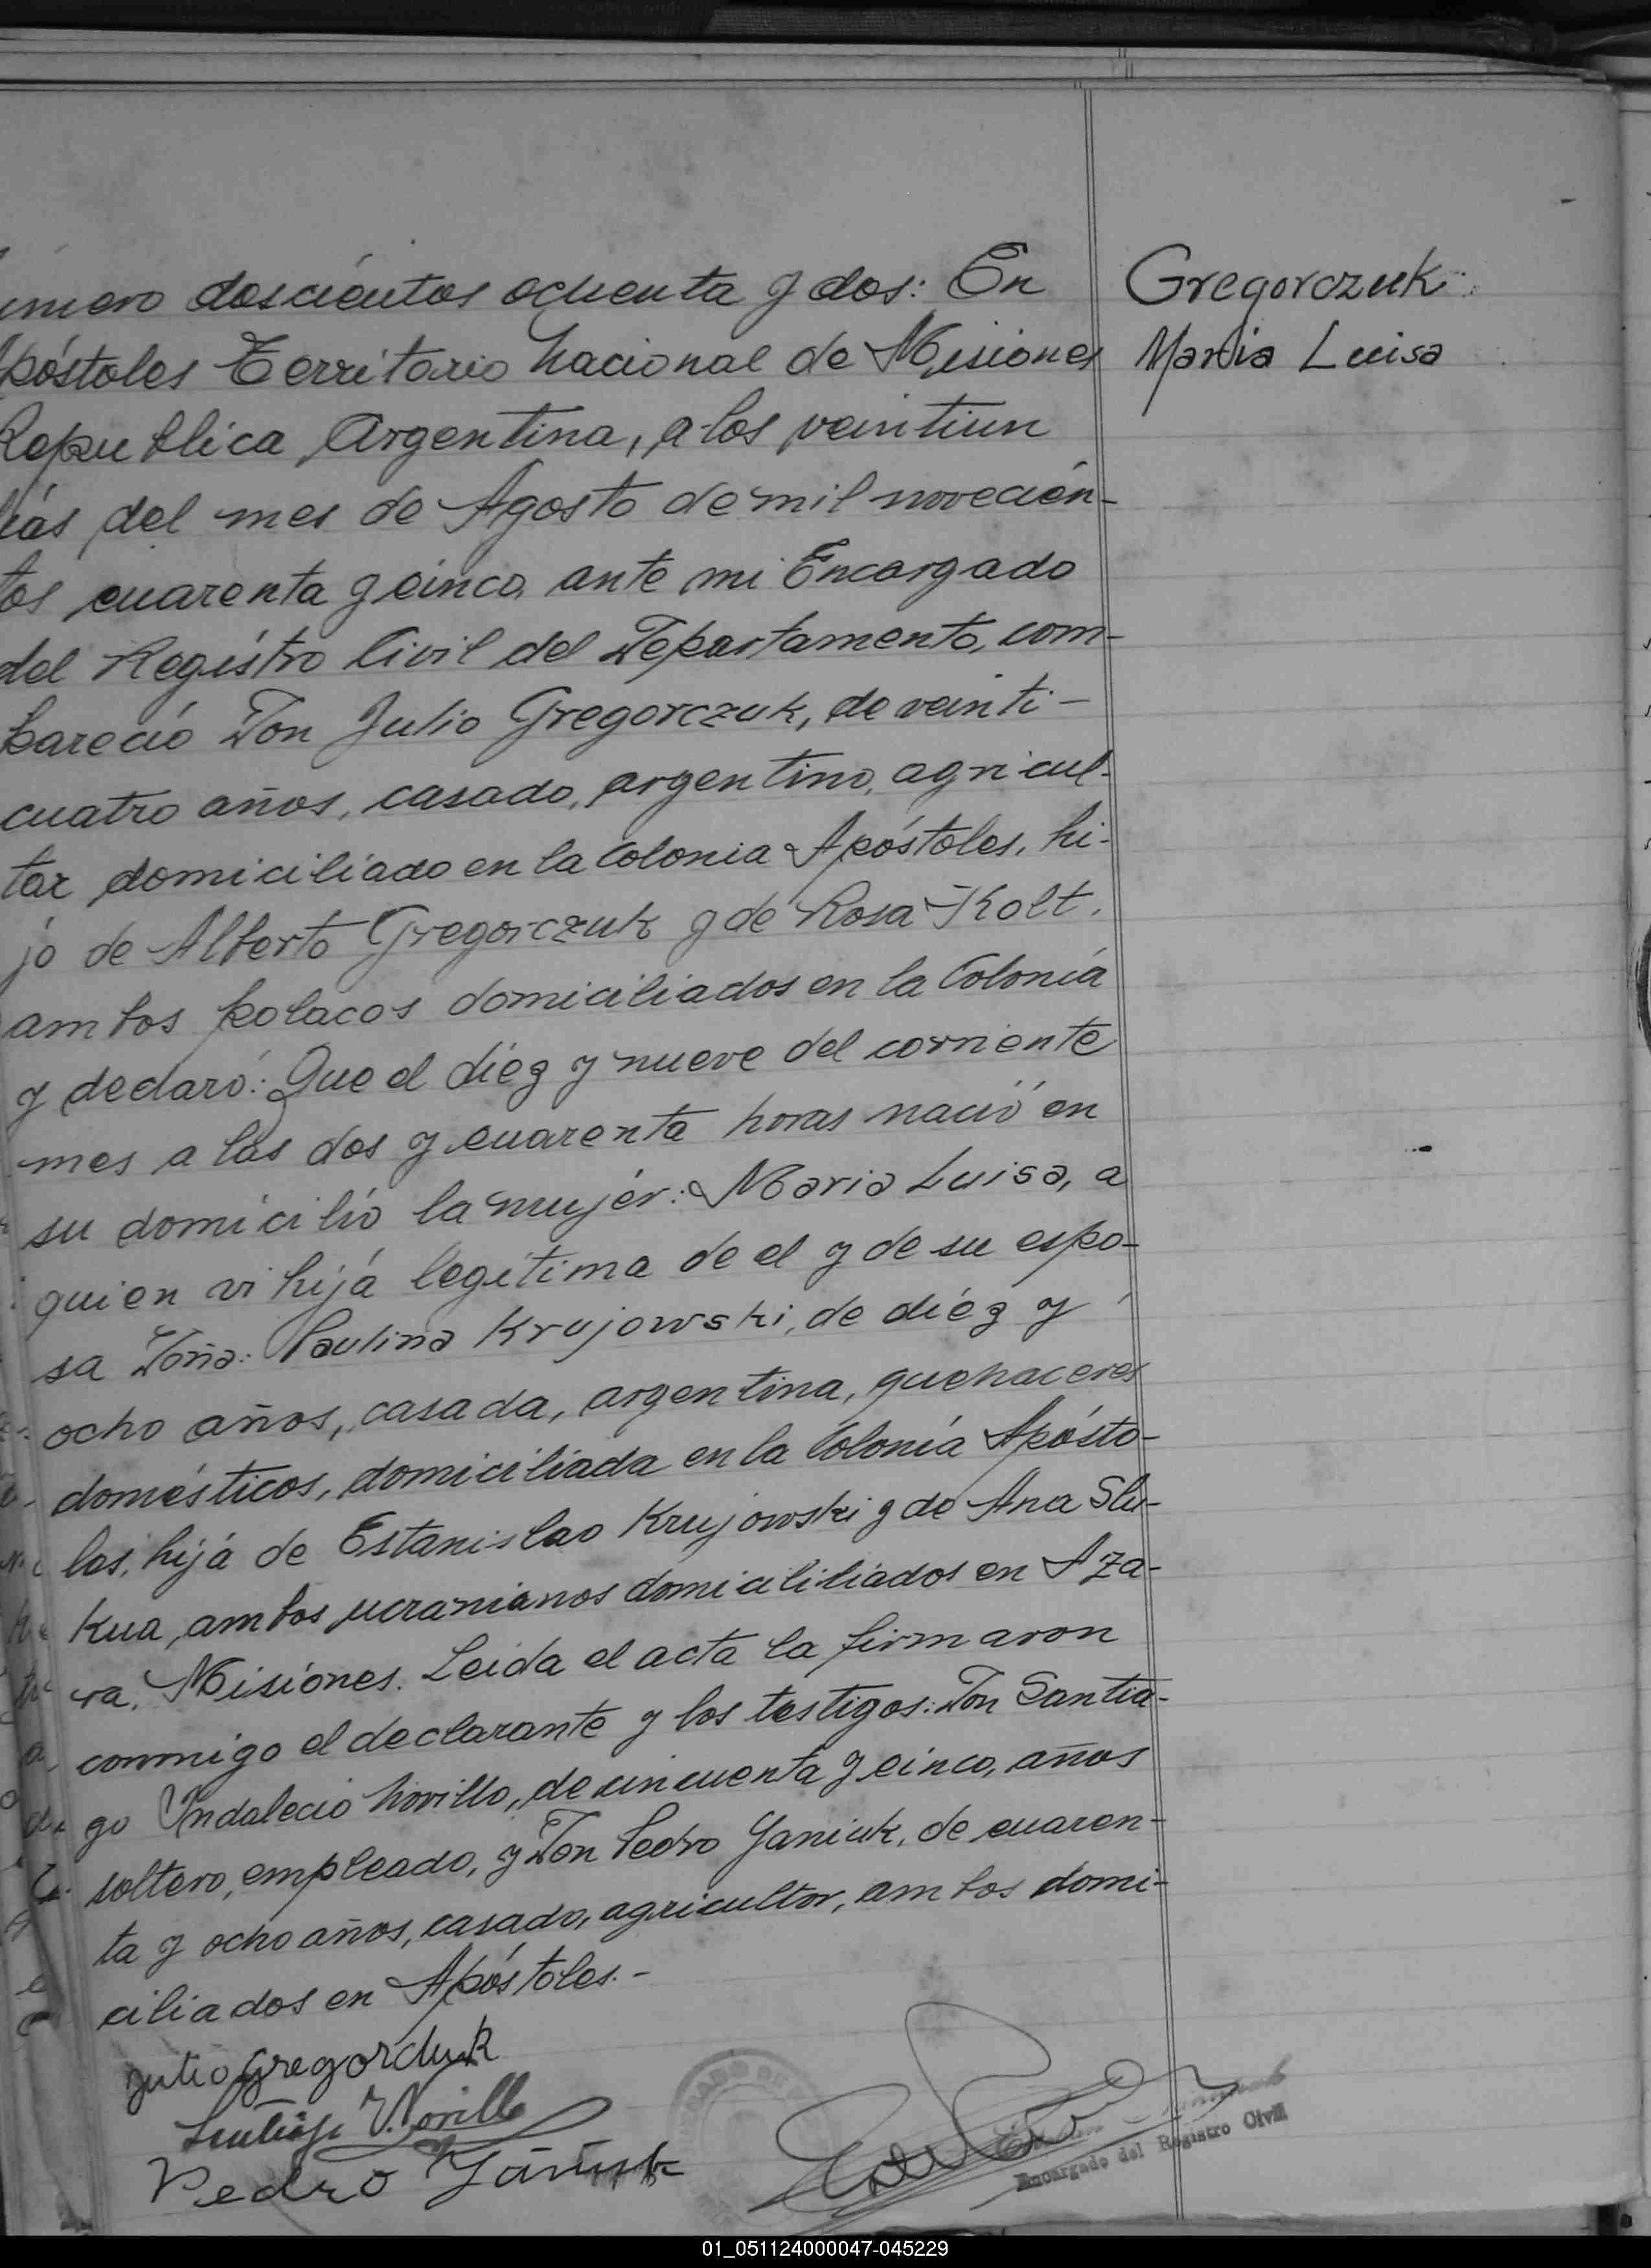 úmero doscientos ochenta y dos: En
Apóstoles Territorio Nacional de Misiones
Republica Argentina, a los veintiun
días del mes de Agosto de mil novecien-
tos cuarenta y cinco, ante mi Encargado
del Registro Civil del Departamento, com-
pareció Don Julio Gregorczuk, de veinti-
cuatro años, casado, argentino, agricul-
tor, domiciliado en la Colonia Apóstoles, hi-
jo de Alberto Gregorczuk y de Rosa Kolt.
ambos polacos domiciliados en la Colonia
y declaró: Que el diéz y nueve del corriente
mes a las dos y cuarenta horas nació en
su domicilio la mujér: Maria Luisa, a
quien vi hija legítima de el y de su espo-
sa Doña: Paulina Krujowski, de diéz y
ocho años, casada, argentina, quehaceres
domésticos, domiciliada en la Colonia Aposto-
les, hija de Estanislao Krujowski y de Ana Slu-
Kua, ambos ucranianos domicililiados en Aza-
ra, Misiones. Leida el acta la firmaron
conmigo el declarante y los testigos: Don Santia-
go Indalecio Novillo, de cincuenta y cinco, años
soltero, empleado, y Don Pedro Yaniuk, de cuaren-
ta y ocho años, casado, agricultor, ambos domi-
ciliados en Apóstoles.-
Gregorczuk
Maria Luisa
Julio Gregorchuk
Santiago I. Novillo
Pedro Yaniuk
Encargado del Registro Civil
01_051124000047-045229